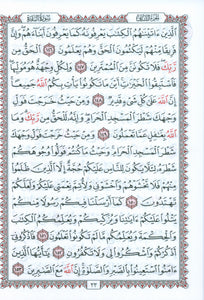 الجزء الثاني سورة البقرة
الذين ءاتينهم الكتب يعرفونه كما يعرفون أبناءهم وإن
فريقا منهم ليكتمون الحق وهم يعلمون ١٤٦ الحق من
ربك فلا تكونن من الممترين ١٤٧ ولكل وجهة هو موليها
فاستبقوا الخيرت أين ما تكونوا يأت بكم الله جميعا
إن الله على كل شىء قدير ١٤٨ ومن حيث خرجت فول
وجهك شطر المسجد الحرام وإنه للحق من ربك وما
الله بغفل عما تعملون ١٤٩ ومن حيث خرجت فول وجهك
شطر المسجد الحرام وحيث ما كنتم فولوا وجوهكم
شطره لئلا يكون للناس عليكم حجة إلا الذين ظلموا
منهم فلا تخشوهم واخشونى ولأتم نعمتى عليكم ولعلكم
تهتدون ١٥٠ كما أرسلنا فيكم رسولا منكم
يتلوا عليكم ءايتنا ويزكيكم ويعلمكم الكتب
والحكمة ويعلمكم ما لم تكونوا تعلمون ١٥١ فاذكرونى
أذكركم واشكروا لى ولا تكفرون ١٥٢ يأيها الذين
ءامنوا استعينوا بالصبر والصلوة إن الله مع الصبرين ١٥٣
٢٣